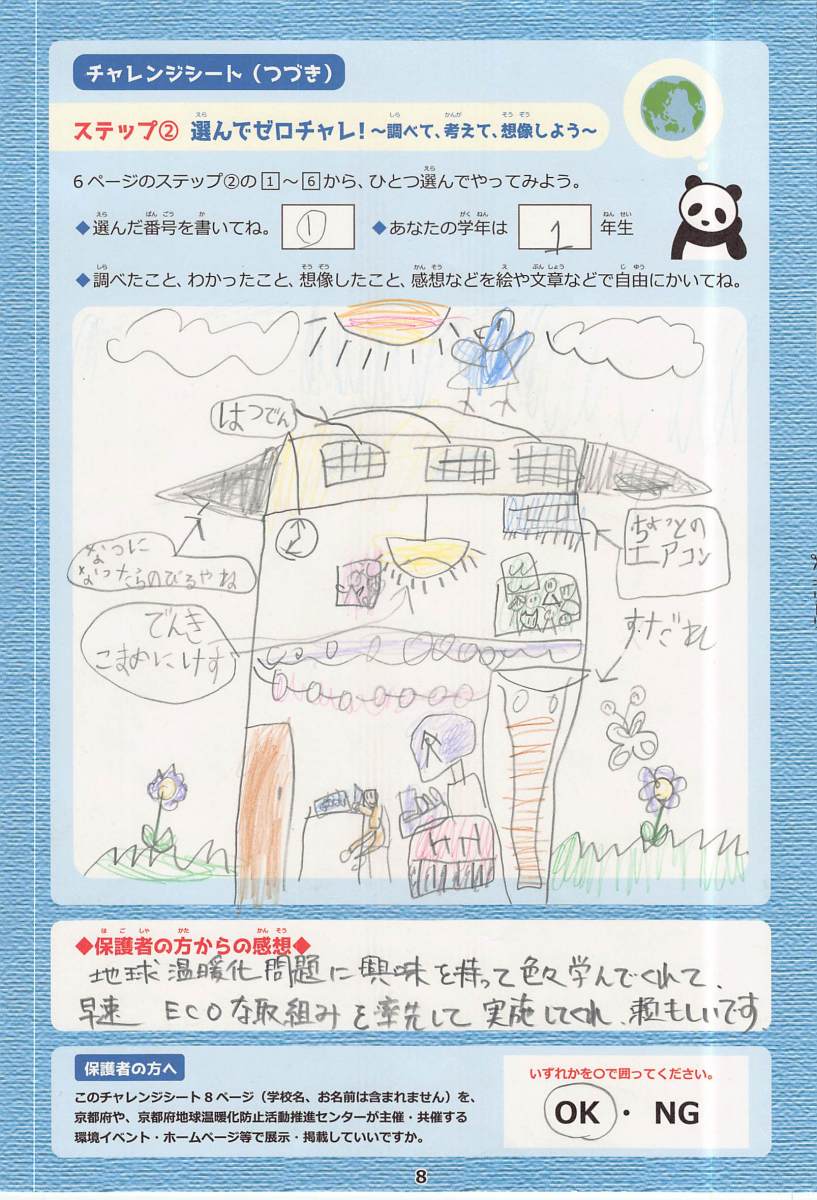 チャレンジシート（つづき）
ステップ② 選んでゼロチャレ！～調べて、考えて、想像しよう～
6ページのステップ②の1～6から、ひとつ選んでやってみよう。
◆選んだ番号を書いてね。 ① ◆あなたの学年は 1 年生
◆調べたこと、わかったこと、想像したこと、感想などを絵や文章などで自由にかいてね。
はつでん
なつに
なったらのびるやね
ちょっとの
エアコン
でんき
こまめにけす
すだれ
◆保護者の方からの感想◆
地球温暖化問題に興味を持って色々学んでくれて、
早速 ECOな取組みを率先して実施してくれ、頼もしいです。
保護者の方へ
このチャレンジシート8ページ（学校名、お名前は含まれません）を、
京都府や、京都府地球温暖化防止活動推進センターが主催・共催する
環境イベント・ホームページ等で展示・掲載していいですか。
いずれかを〇で囲ってください。
OK・NG
8